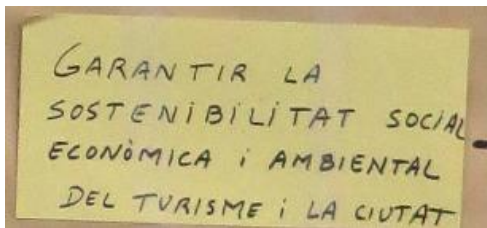 GARANTIR LA
SOSTENIBILITAT SOCIAL
ECONÒMICA i AMBIENTAL
DEL TURISME i LA CIUTAT